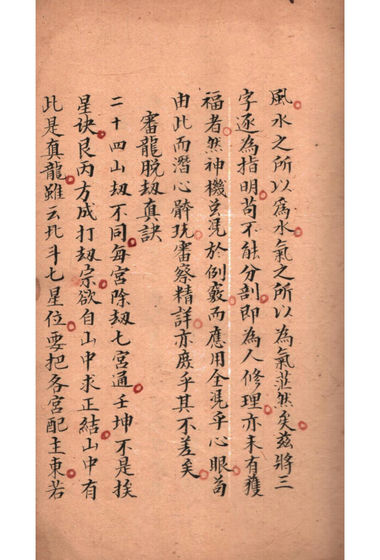 風水之所以為水氣之所以為氣茫然矣茲將三
字逐為指明苟不能分剖即為人修理亦未有獲
福者然神機玄見於倒竅而應用全見乎心眼苟
由此而潛心研究審察精詳亦庶乎其不差矣
審龍脫刼真訣
二十四山刼不同每宮除刼七宮通壬坤不是挨
星訣艮丙方成打刼宗欲自山中求正結山中有
此是真龍雖云北斗七星位要把各宮配主東若